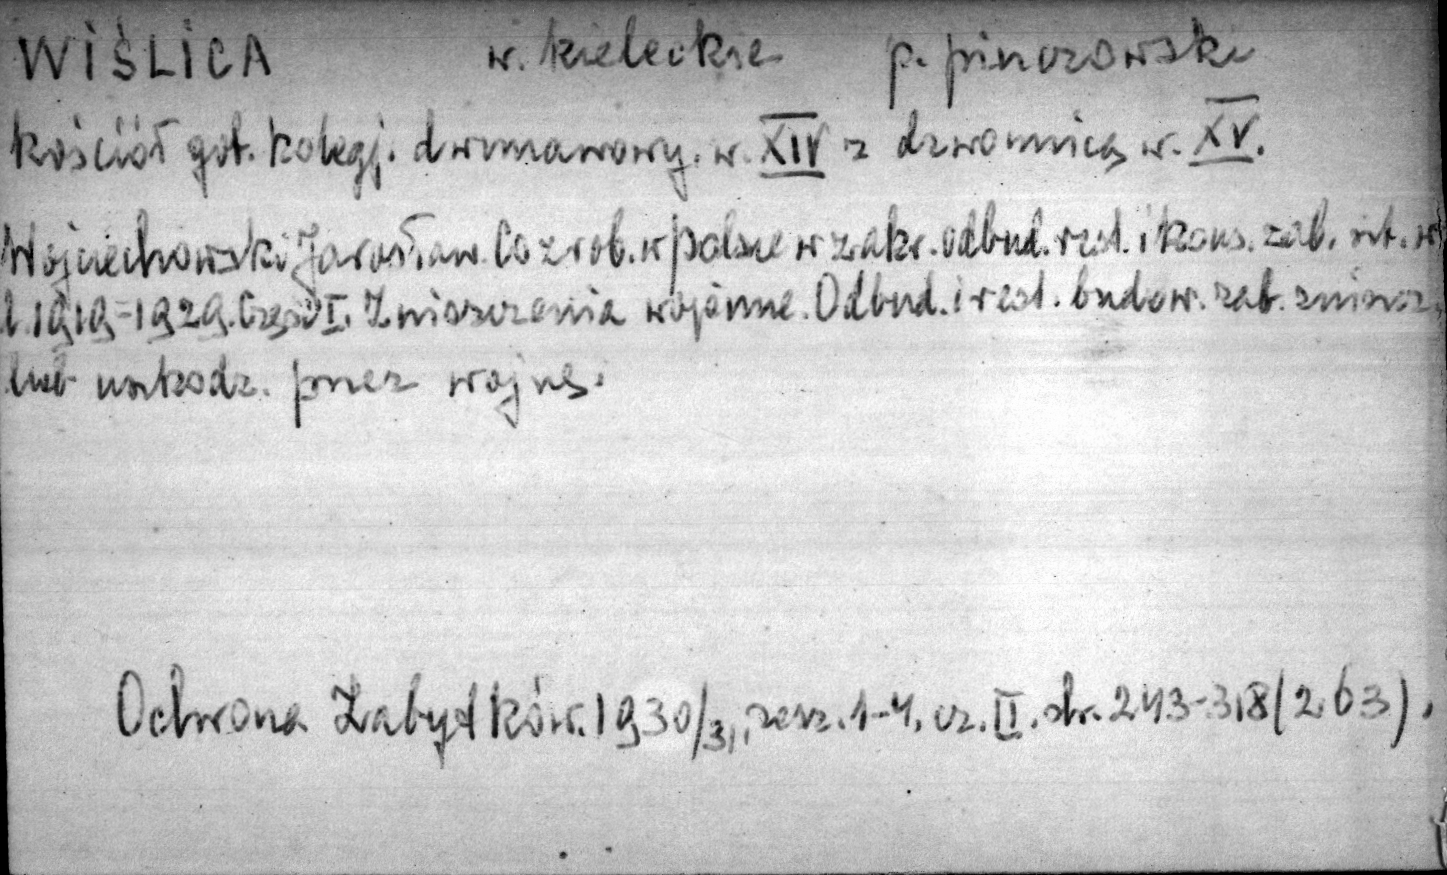 WIŚLICA w. kieleckie p. pinczowski
kościół got. kolegj. dwunawowy. w. XIV z dzwonnicą w. XV.
Wojciechowski Jarosław. Co zrob. w Polsce w zakr. odbud. rest. i kons. zab. szt. w
l. 1919-1929. Część I. Zniszczenia wojenne. Odbud. i rest. budow. zab. zniszcz.
lub uszkodz. przez wojnę.
Ochrona Zabytków. 1930/31, zesz. 1-4. cz. II. str. 243-318 (263).